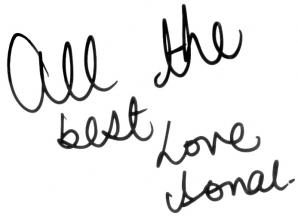 All the
best Love
Sonal.